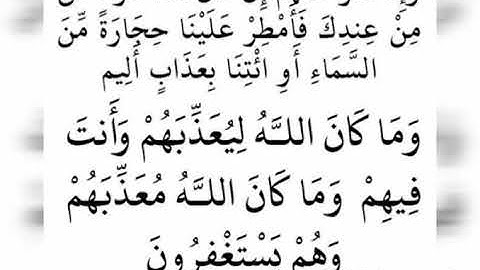 مِنْ عِندِكَ فَأَمْطِرْ عَلَيْنَا حِجَارَةً مِّنَ
السَّمَاءِ أَوِ ائْتِنَا بِعَذَابٍ أَلِيم
وَمَا كَانَ اللَّهُ لِيُعَذِّبَهُمْ وَأَنتَ
فِيهِمْ وَمَا كَانَ اللَّهُ مُعَذِّبَهُمْ
وَهُمْ يَسْتَغْفِرُونَ